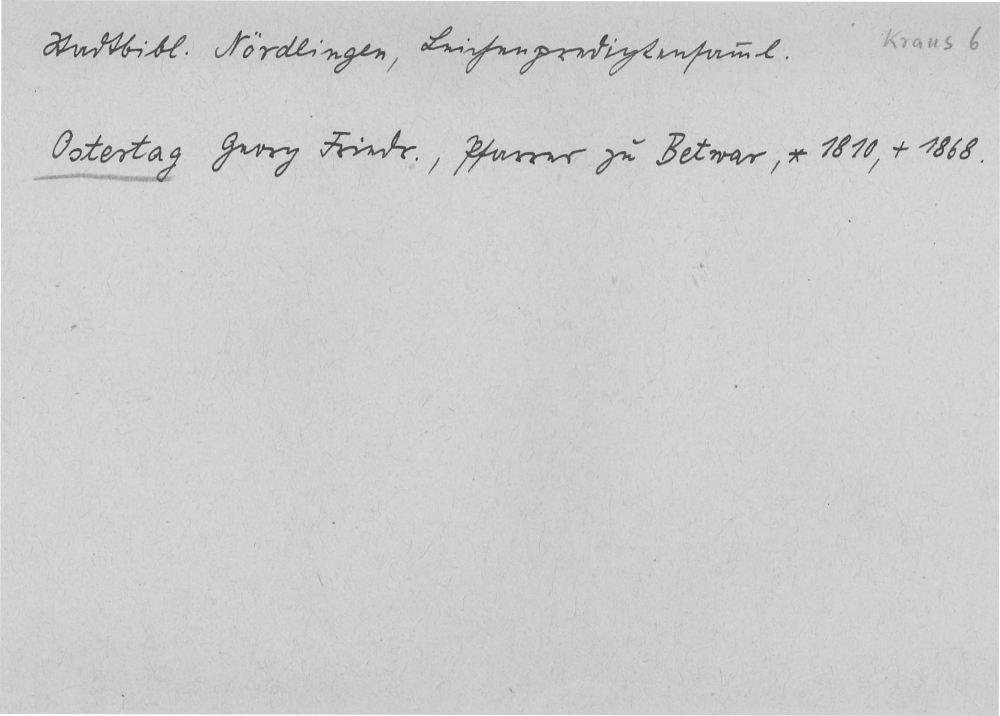 Stadtbibl. Nördlingen, Leichenpredigtensam̄l. Kraus 6
Ostertag Georg Friedr., Pfarrer zu Betwar, * 1810, + 1868.